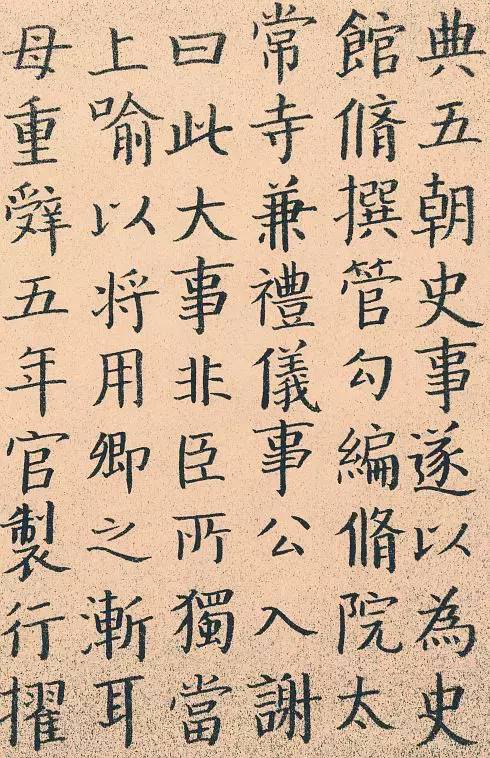 典五朝史事遂以為史
館脩撰管勾編脩院太
常寺兼禮儀事公入謝
曰此大事非臣所獨當
上喻以将用卿之漸耳
母重辤五年官製行擢